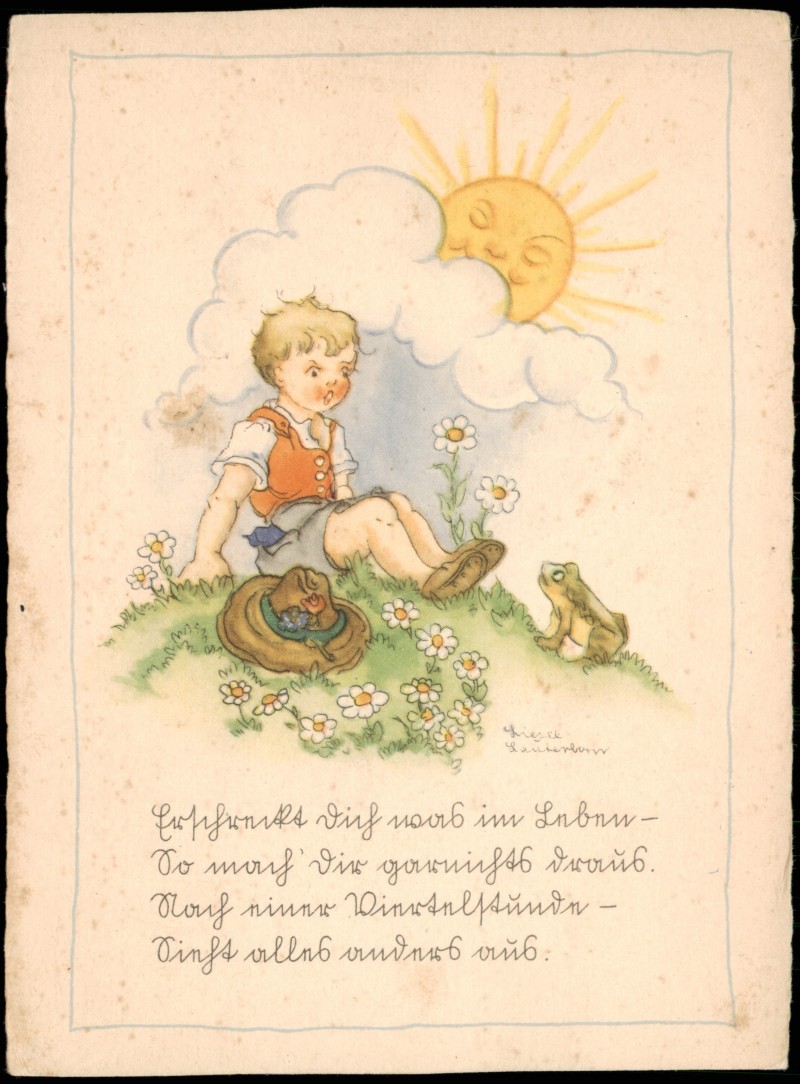 Liesel
Lauterborn
Erschreckt Dich was im Leben –
So mach' Dir garnichts draus.
Nach einer Viertelstunde –
Sieht alles anders aus.